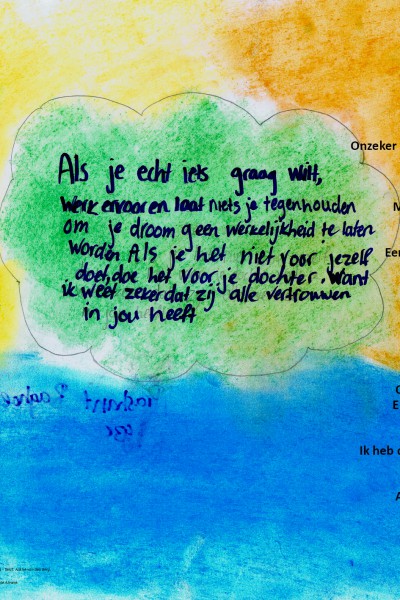 Als je echt iets graag wilt,
werk ervoor en laat niets je tegenhouden
om je droom geen werkelijkheid te laten
worden Als je het niet voor jezelf
doet, doe het voor je dochter. Want
ik weet zeker dat zij alle vertrouwen
in jou heeft
Onzeker
Ik heb